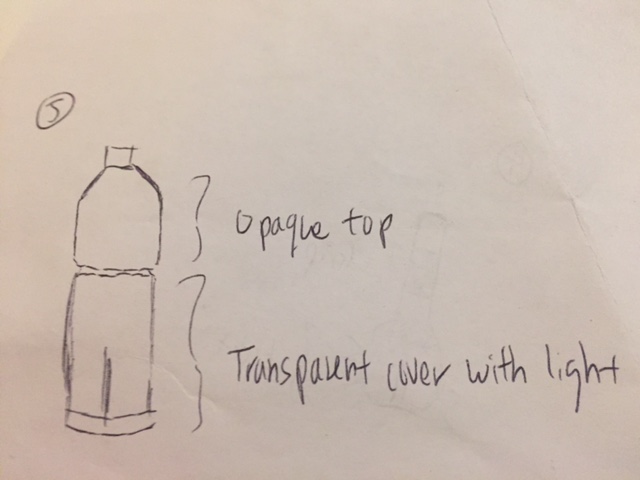 5
Opaque top
Transparent cover with light